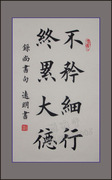 不矜細行
終累大德
錄尚書句 明書